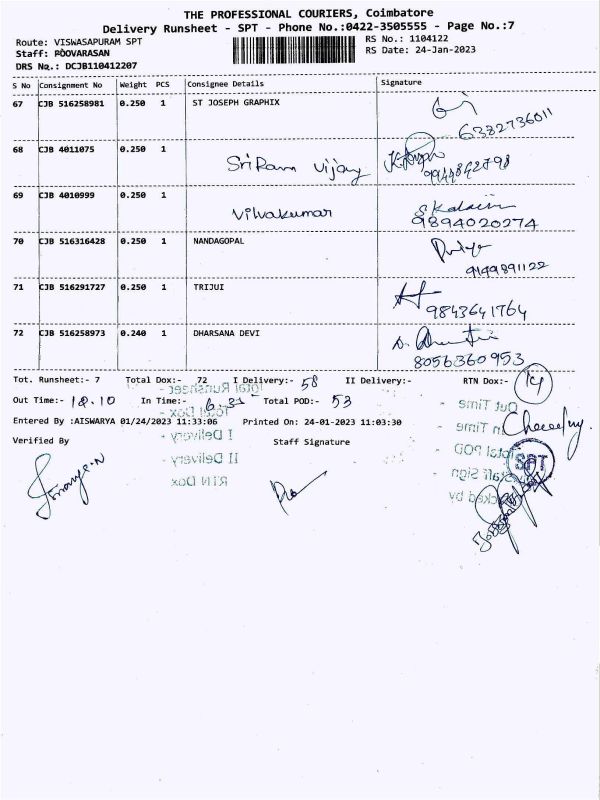 THE PROFESSIONAL COURIERS, Coimbatore
Delivery Runsheet - SPT - Phone No.:0422-3505555 - Page No.:7
Route: VISWASAPURAM SPT
RS No.: 1104122
Staff: POOVARASAN
RS Date: 24-Jan-2023
DRS No.: DCJB110412207
S No Consignment No Weight PCS Consignee Details Signature
67 CJB 516258981 0.250 1 ST JOSEPH GRAPHIX
6382736011
68 CJB 4011075 0.250 1 SriRam Vijay
9944842798
69 CJB 4010999 0.250 1 Vilvakumar
9894020274
70 CJB 516316428 0.250 1 NANDAGOPAL
9149891122
71 CJB 516291727 0.250 1 TRIJUI
9843641764
72 CJB 516258973 0.240 1 DHARSANA DEVI
8056360953
Tot. Runsheet:- 7 Total Dox:- 72 I Delivery:- 58 II Delivery:- RTN Dox:- 14
Out Time:- 12.10 In Time:- 6.31 Total POD:- 53
Entered By :AISWARYA 01/24/2023 11:33:06 Printed On: 24-01-2023 11:03:30
Verified By Staff Signature
Total Runsheet -
Total Dox -
I Delivery -
II Delivery -
RTN Dox
Out Time -
In Time -
Total POD -
Staff Sign
SPT